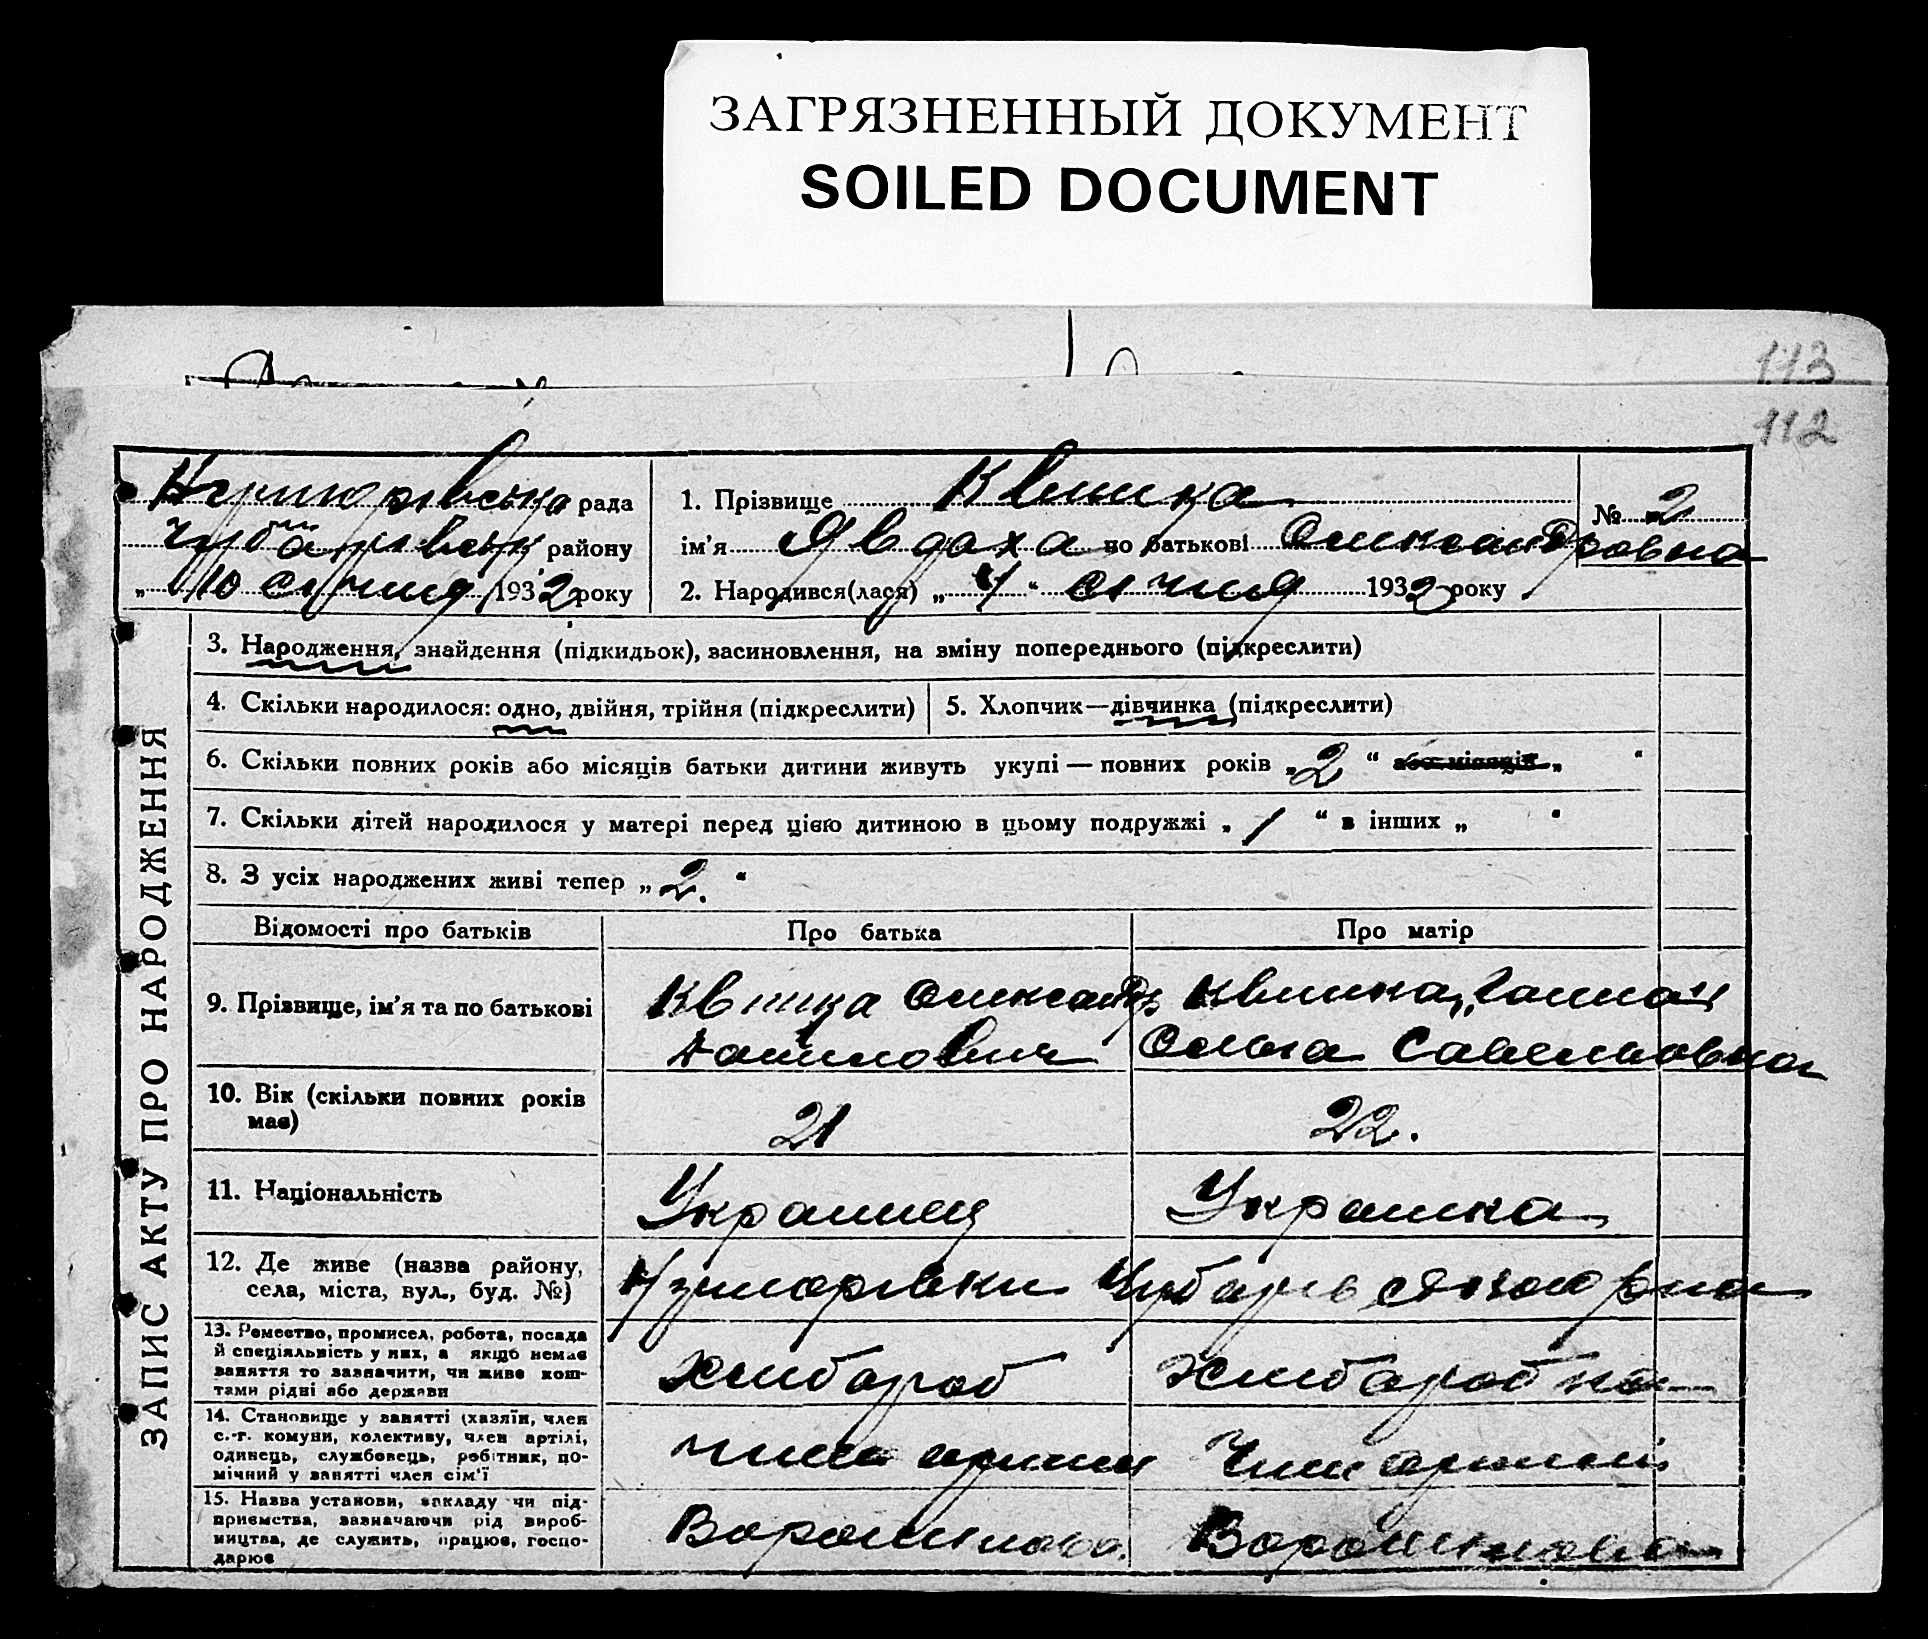 ЗАГРЯЗНЕННЫЙ ДОКУМЕНТ
SOILED DOCUMENT
113
112
рада
району
„ 10 січня 1932 року
1. Прізвище Квітка
ім'я Явдоха по батькові Олександровна
№ 2
2. Народився(лася) „ 1 “ січня 1932 року
ЗАПИС АКТУ ПРО НАРОДЖЕННЯ
3. Народження, знайдення (підкидьок), засиновлення, на зміну попереднього (підкреслити)
4. Скільки народилося: одно, двійня, трійня (підкреслити)
5. Хлопчик—дівчинка (підкреслити)
6. Скільки повних років або місяців батьки дитини живуть укупі — повних років „ 2 “ або місяців „ “
7. Скільки дітей народилося у матері перед цією дитиною в цьому подружжі „ 1 “ в інших „ “
8. З усіх народжених живі тепер „ 2. “
Відомості про батьків Про батька Про матір
9. Прізвище, ім'я та по батькові
Квітка Олександр
Данилович
Квітка
Ольга Савельовна
10. Вік (скільки повних років
має)
21
22.
11. Національність
Украінец
Украінка
12. Де живе (назва району,
села, міста, вул., буд. №)
13. Ремество, промисел, робота, посада
й спеціяльність у них, а якщо немає
заняття то зазначити, чи живе кош-
тами рідні або держави
Хлибороб
Хлиборобка
14. Становище у занятті (хазяїн, член
с.-г. комуни, колективу, член артілі,
одинець, службовець, робітник, по-
мічний у занятті член сім'ї
член артили
Член артили
15. Назва установи, закладу чи під-
приємства, зазначаючи рід вироб-
ництва, де служить, працює, госпо-
дарює
Ворошилова.
Ворошилова